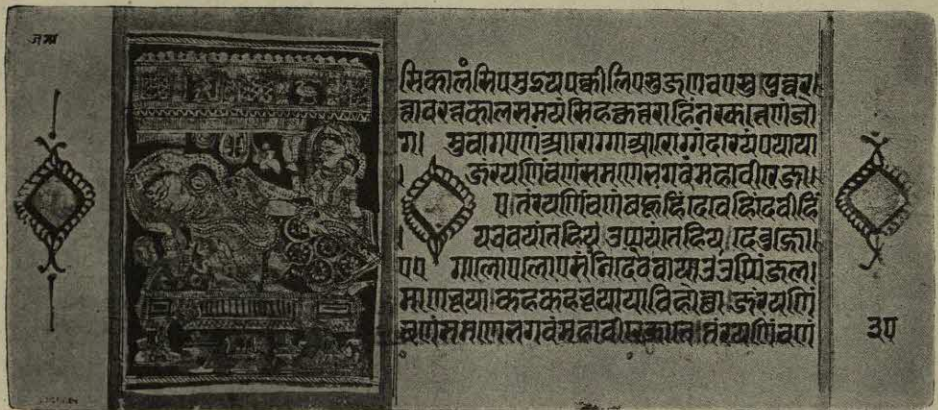 जन्म
सिकालंसिपमुइयपक्कीलिएसुजणवएसुपुव्वर
त्तावरत्तकालसमयंसिहत्थुत्तराहिंनरकत्तेणंजो
ग। मुवागएणंआरोग्गाआरोग्गंदारयंपयाया
जंरयणिंचणंसमणेभगवंमहावीरेजा
ए।तंरयणिंचणंबहूहिंदेवेहिंदेवीहिं
यउवयंतेहियउप्पयंतेहिय।देवुज्जो
एए गालोएलोएदेवसंनिवाया
माणभूया।कहकहभूयायाविहोत्था।जंरयणिं
चणंसमणेभगवंमहावीरेजाए।तंरयणिंचणं
३५